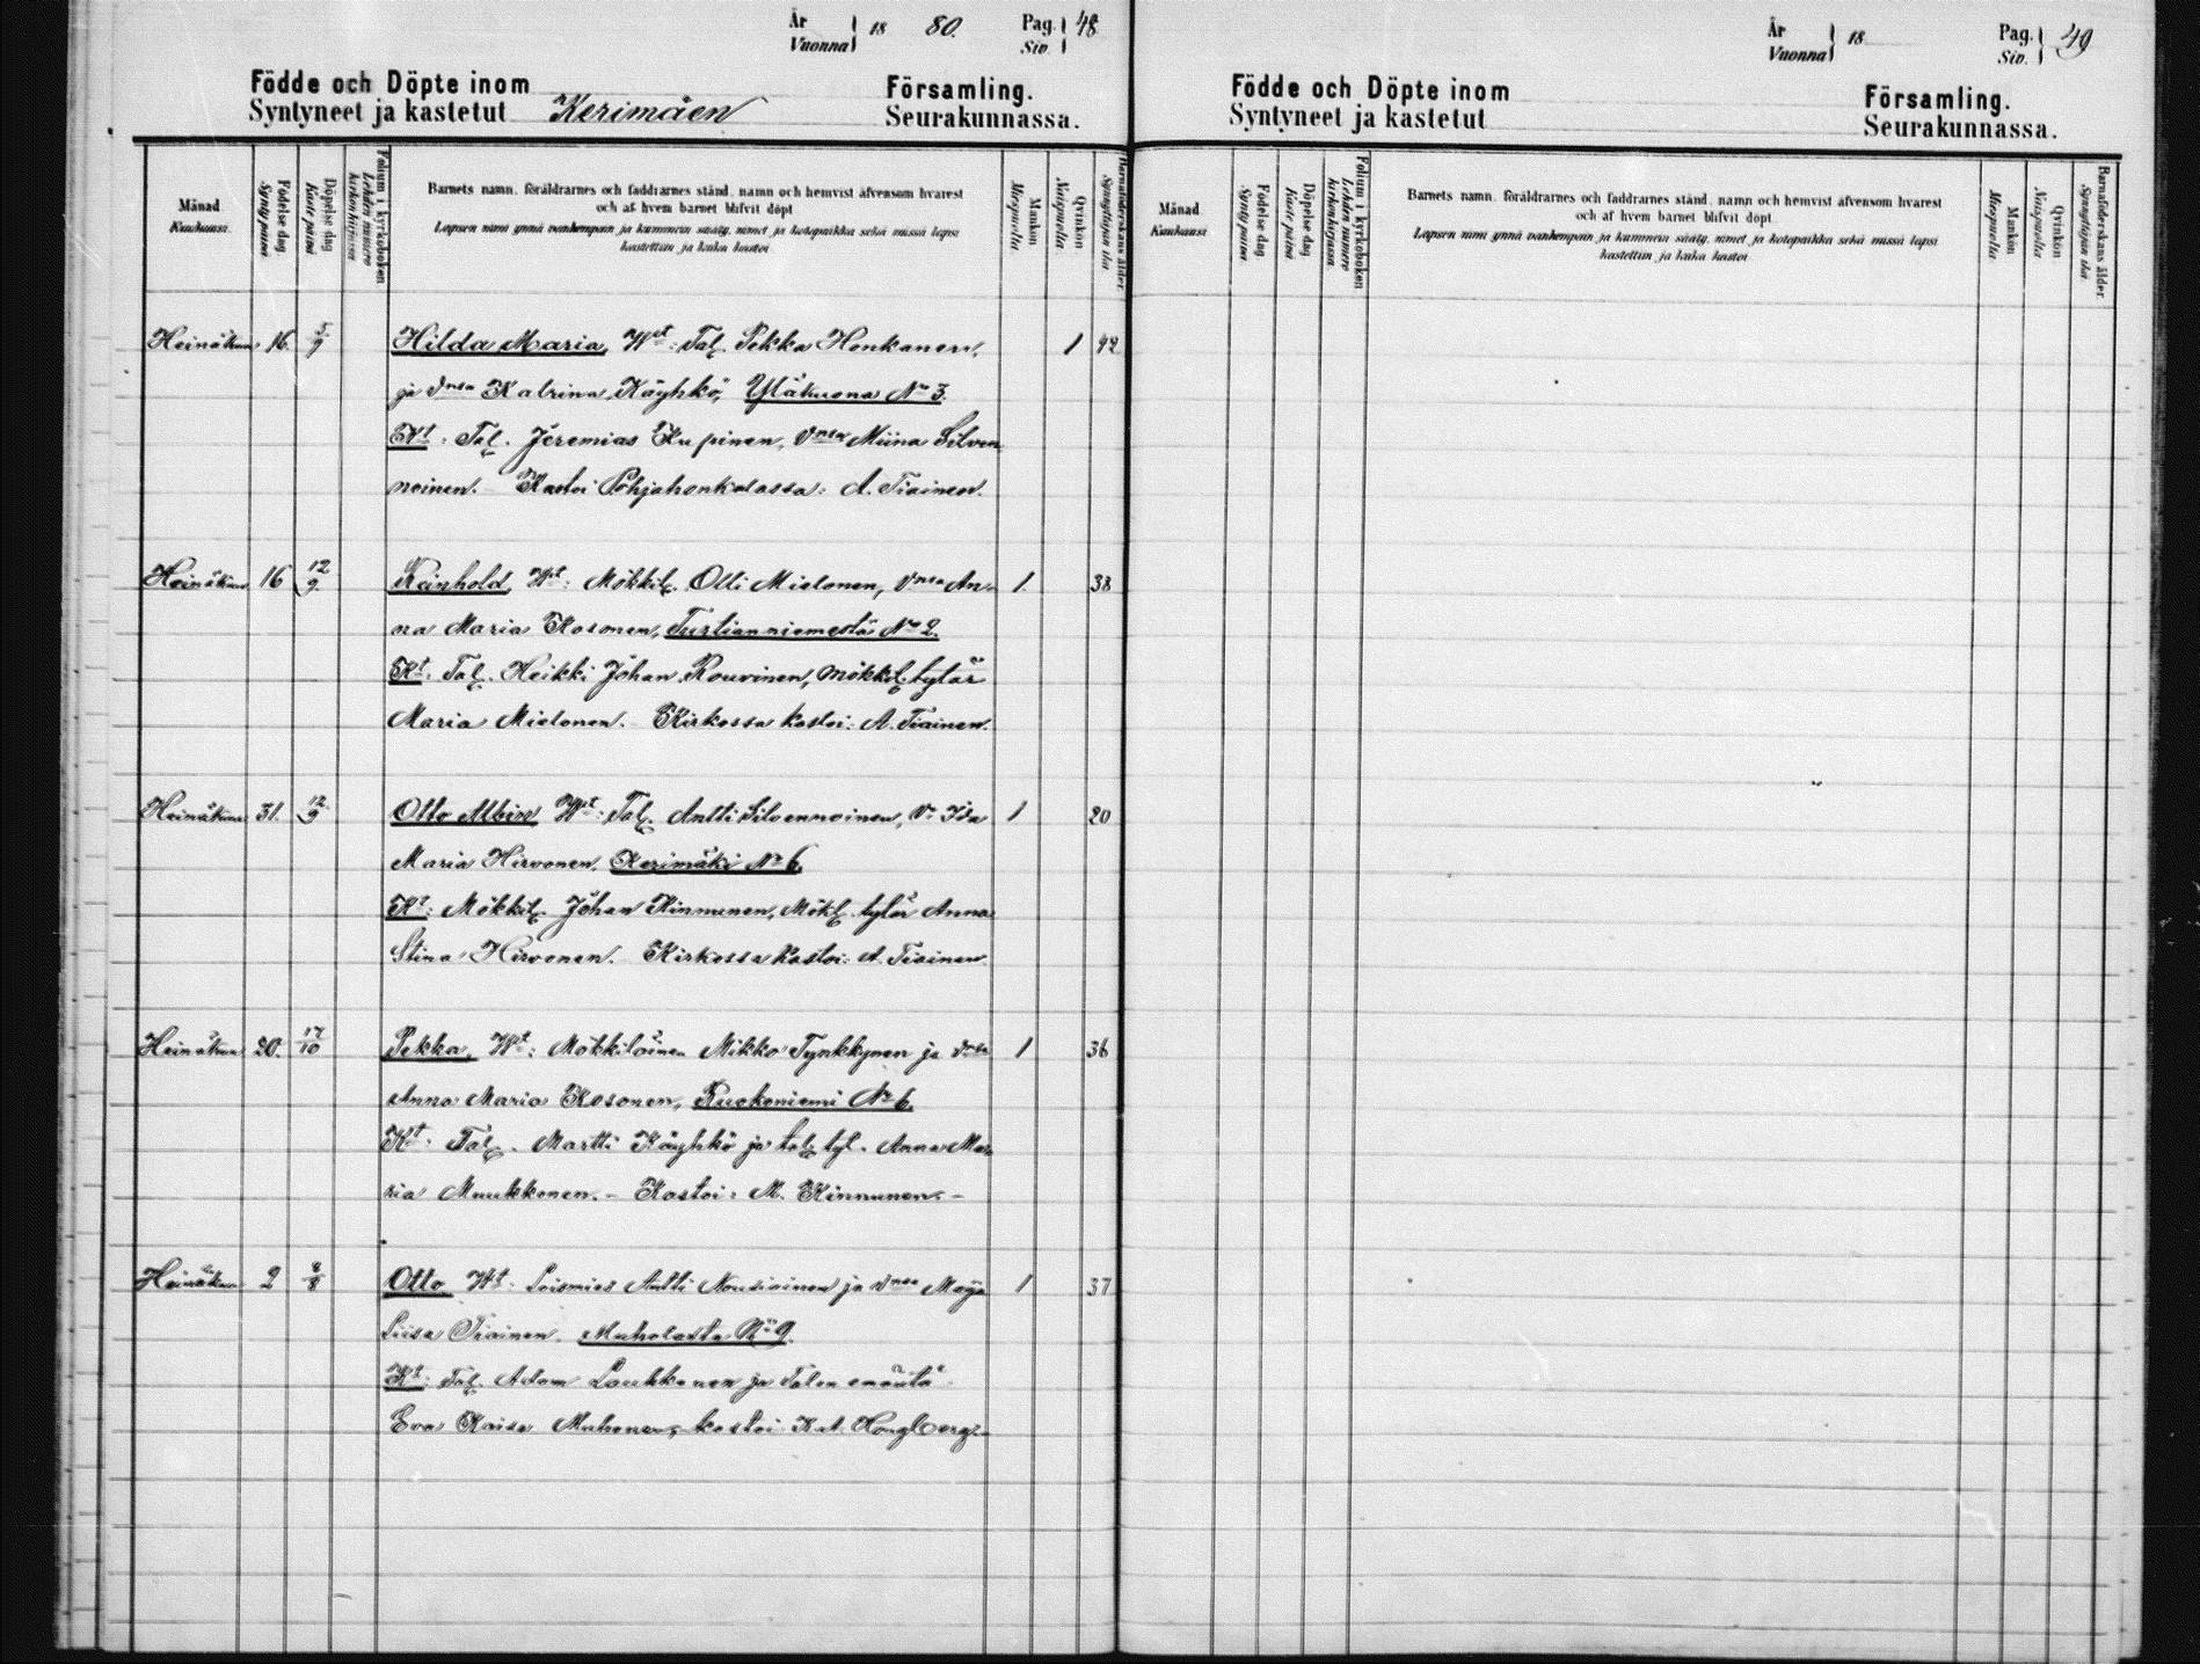 År
Vuonna } 18 80. Pag. } 48
Siv.
Födde och Döpte inom
Syntyneet ja kastetut Kerimäen
Församling.
Seurakunnassa.
Månad
Kuukausi
Födelse dag
Synty päivä
Döpelse dag
Kaste päivä
Folium i kyrkoboken
Lehden numero
kirkonkirjassa
Barnets namn, föräldrarnes och faddrarnes stånd, namn och hemvist äfvensom hvarest
och af hvem barnet blifvit döpt
Lapsen nimi ynnä vanhempain ja kummein sääty, nimet ja kotopaikka sekä missä lapsi
kastettiin ja kuka kastoi
Mankön
Miespuolta
Qvinkön
Naispuolta
Barnaföderskans ålder
Synnyttäjän ikä
Heinäkuu 16. 5/9 Hilda Maria, Wt: Tal. Pekka Honkanen, 1 42
ja vmsa Katrina Käyhkö, Yläkuona No 3.
Kt: Tal. Jeremias Kupinen, vmsa Miina Silven
noinen. Kastoi Pohjahonkalassa: A. Tiainen.
Heinäkuu 16 12/9. Reinhold, Wt: Mökkil. Olli Mielonen, vmsa An- 1. 38
na Maria Kosonen, Turtianniemestä No 2.
Kt. Tal. Heikki Johan Rouvinen, mökkil. tytär
Maria Mielonen. Kirkossa kastoi: A. Tiainen.
Heinäkuu 31. 12/9 Otto Albin Wt: Tal. Antti Silvennoinen, Vo Ida 1 20
Maria Hirvonen, Kerimäki No 6.
Kt: Mökkil. Johan Kinnunen, Mökl. tytär Anna
Stina Hirvonen. Kirkossa kastoi: A. Tiainen
Heinäkuu 20. 17/10 Pekka, Wt: Mökkiläinen Mikko Tynkkynen ja vmsa 1 36
Anna Maria Kosonen, Ruokoniemi No 6.
Kt: Tal. Martti Käyhkö ja tal. tyt. Anna Ma-
ria Muukkonen. - Kastoi: M. Kinnunen. -
Heinäkuu 2 8/8 Otto Wt: Loismies Antti Nousiainen ja vmsa Maija 1 37
Liisa Tiainen. Muholasta No 9.
Kt: Tal. Adam Laukkanen ja Talon emäntä
Eva Kaisa Muhonen, kastoi Kat. Hougberg.
År
Vuonna } 18 Pag. } 49
Siv.
Födde och Döpte inom
Syntyneet ja kastetut
Församling.
Seurakunnassa.
Månad
Kuukausi
Födelse dag
Synty päivä
Döpelse dag
Kaste päivä
Folium i kyrkoboken
Lehden numero
kirkonkirjassa
Barnets namn, föräldrarnes och faddrarnes stånd, namn och hemvist äfvensom hvarest
och af hvem barnet blifvit döpt
Lapsen nimi ynnä vanhempain ja kummein sääty, nimet ja kotopaikka sekä missä lapsi
kastettiin ja kuka kastoi
Mankön
Miespuolta
Qvinkön
Naispuolta
Barnaföderskans ålder
Synnyttäjän ikä